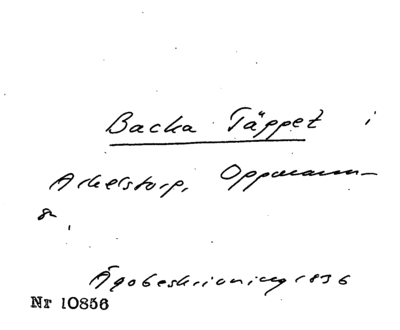 Backa Täppet i
Arkelstorp, Oppmanna
sn.
Ägobeskrivning 1836
Nr 10856